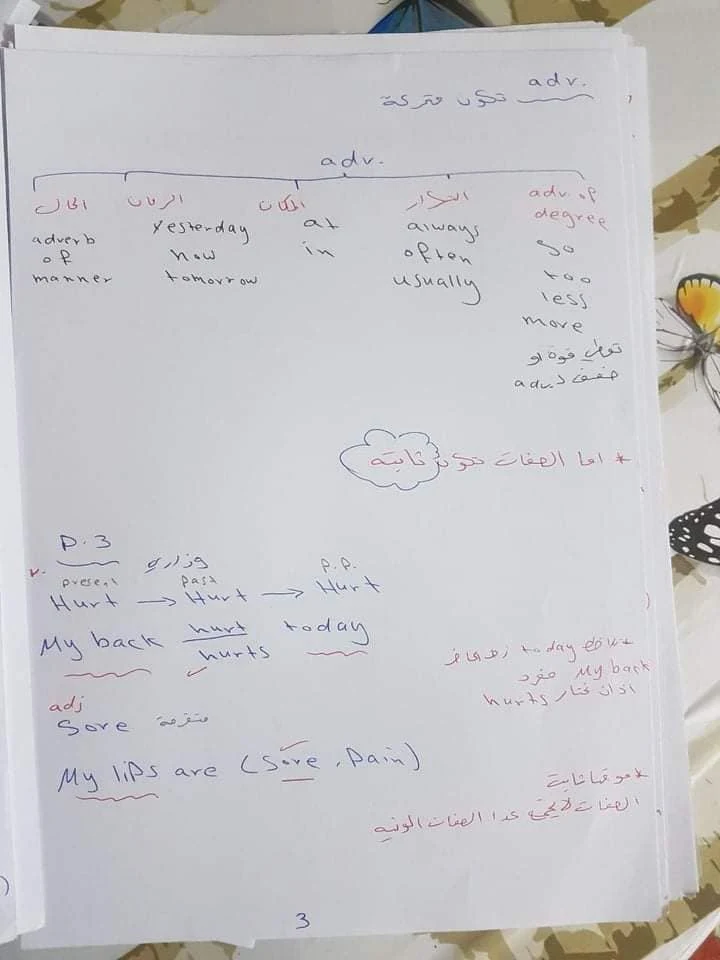 adv. تكون متحركة
adv.
الحال
adverb
of
manner
الزمان
yesterday
now
tomorrow
المكان
at
in
التكرار
always
often
usually
adv. of
degree
so
too
less
more
تعطي قوة او
ضعف لـ adv.
* اما الصفات تكون ثابته
P.3
وزاري
present past P.P.
Hurt → Hurt → Hurt
My back hurt today
hurts
* نلاحظ today زمن حاضر
My back مفرد
اذن نختار hurts
adj
Sore متقرحة
My lips are (Sore, Pain)
* موقعها ثابتة
الصفات لا تجمع عدا الصفات
3